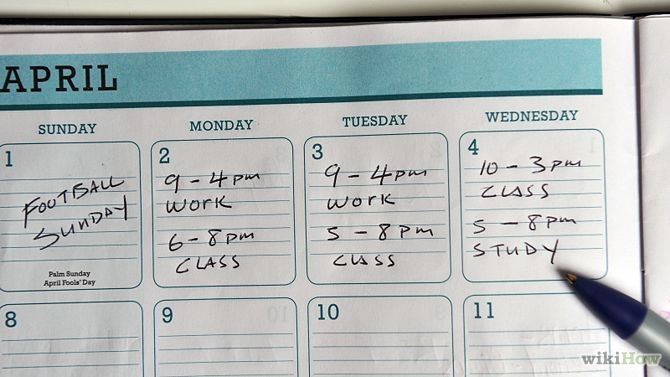 APRIL
SUNDAY
MONDAY
TUESDAY
WEDNESDAY
1
FOOTBALL
SUNDAY
Palm Sunday
April Fools' Day
2
9 - 4 pm
WORK
6 - 8 pm
CLASS
3
9 - 4 pm
WORK
5 - 8 pm
CLASS
4
10 - 3 pm
CLASS
5 - 8 pm
STUDY
8
9
10
11
wikiHow